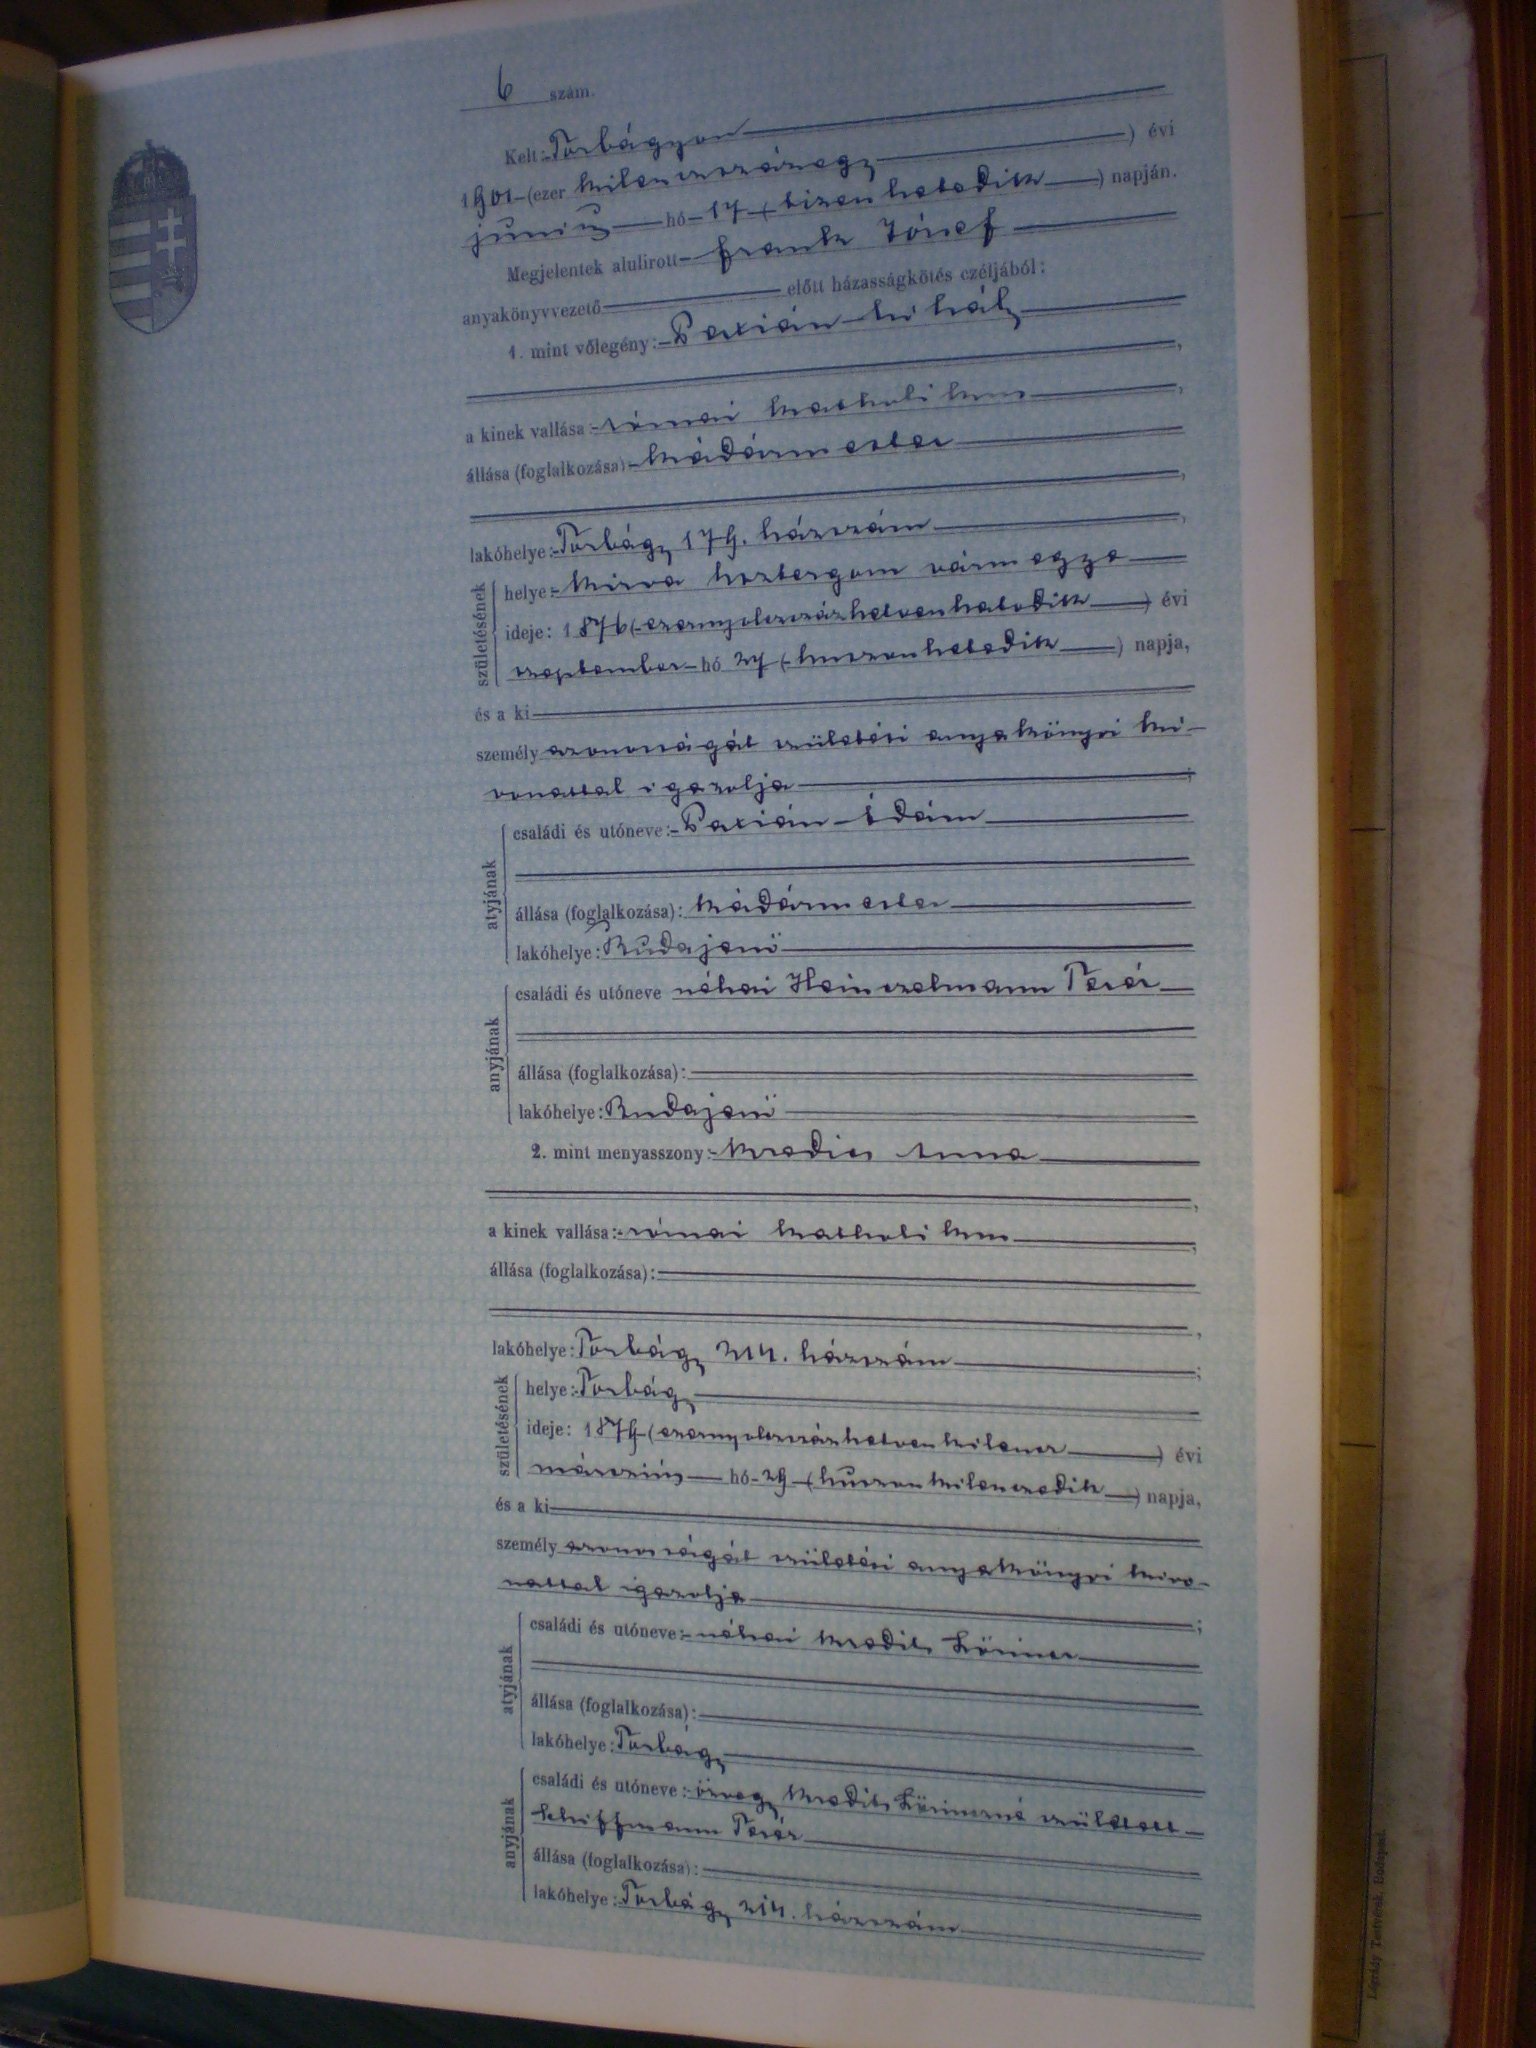 6 szám.
Kelt: Torbágyon
1901 (ezer kilenczszázegy) évi
június hó 17 (tizenhetedik) napján.
Megjelentek alulirott Frank József
anyakönyvvezető előtt házasságkötés czéljából:
1. mint vőlegény: Paxián Mihály
a kinek vallása: római katholikus
állása (foglalkozása): kádármester
lakóhelye: Torbágy 179. házszám
születésének
helye: Kirva Esztergom vármegye
ideje: 1876 (ezernyolczszázhetvenhatodik) évi
szeptember hó 27 (huszonhetedik) napja,
és a ki
személy azonosságát születési anyakönyvi ki-
vonattal igazolja
atyjának
családi és utóneve: Paxián Ádám
állása (foglalkozása): kádármester
lakóhelye: Budajenő
anyjának
családi és utóneve néhai Heinczelmann Teréz
állása (foglalkozása):
lakóhelye: Budajenő
2. mint menyasszony: Anna
a kinek vallása: római katholikus
állása (foglalkozása):
lakóhelye: Torbágy 214. házszám
születésének
helye: Torbágy
ideje: 1879 (ezernyolczszázhetvenkilencz) évi
márczius hó 29 (huszonkilenczedik) napja,
és a ki
személy azonosságát születési anyakönyvi kivo-
nattal igazolja
atyjának
családi és utóneve: néhai Lőrincz
állása (foglalkozása):
lakóhelye: Torbágy
anyjának
családi és utóneve: özvegy Lőrinczné született
Schiffmann Teréz
állása (foglalkozása):
lakóhelye: Torbágy 214. házszám
Légrády Testvérek, Budapest.